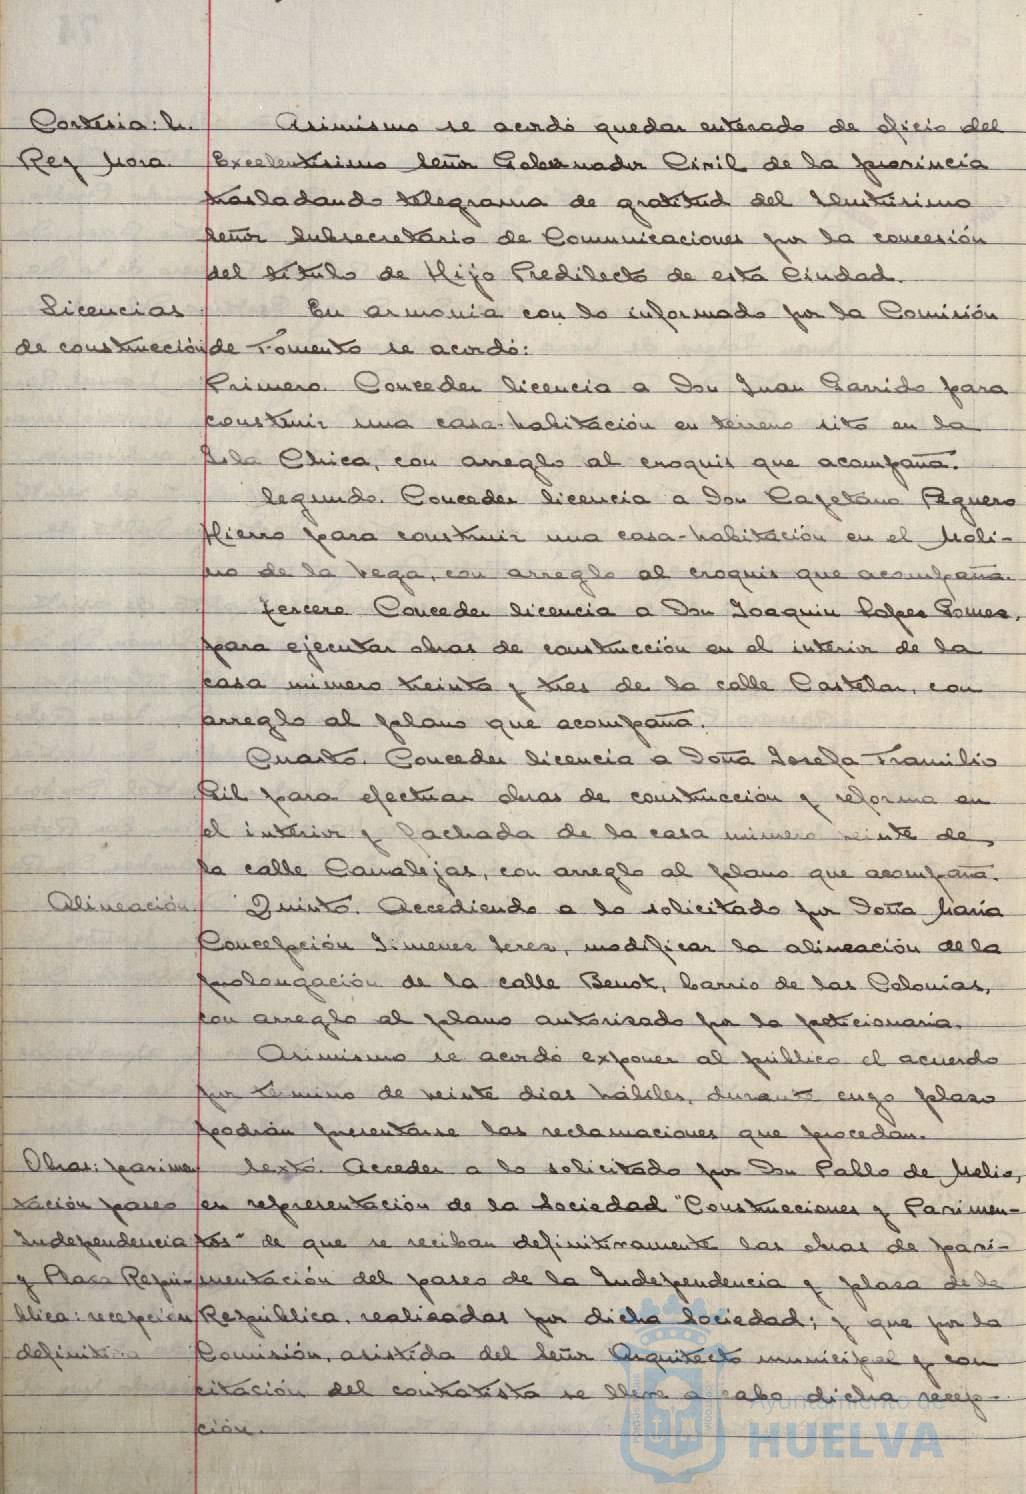 Cortesia: Sr.
Rey Mora.
Asimismo se acordó quedar enterado de oficio del
Excelentisimo Señor Gobernador Civil de la provincia
trasladando telegrama de gratitud del Ilustrisimo
Señor Subsecretario de Comunicaciones por la concesión
del titulo de Hijo Predilecto de esta Ciudad.
Licencias
de construcción
En armonia con lo informado por la Comisión
de Fomento se acordó:
Primero. Conceder licencia a Don Juan Garrido para
construir una casa-habitación en terreno sito en la
Isla Chica, con arreglo al croquis que acompaña.
Segundo. Conceder licencia a Don Cayetano Peguero
Hierro para construir una casa-habitación en el Moli-
no de la Vega, con arreglo al croquis que acompaña.
Tercero Conceder licencia a Don Joaquin Lopez Gomez,
para ejecutar obras de construcción en el interior de la
casa número treinta y tres de la calle Castelar, con
arreglo al plano que acompaña.
Cuarto. Conceder licencia a Doña Josefa Framilio
Gil para efectuar obras de construcción y reforma en
el interior y fachada de la casa número veinte de
la calle Canalejas, con arreglo al plano que acompaña.
Alineación
Quinto. Accediendo a lo solicitado por Doña Maria
Concepción Jimenez Jerez, modificar la alineación de la
prolongación de la calle Benot, barrio de las Colonias,
con arreglo al plano autorizado por la peticionaria.
Asimismo se acordó exponer al público el acuerdo
por término de veinte dias hábiles, durante cuyo plazo
podrán presentarse las reclamaciones que procedan.
Obras: pavimen
tación paseo
Independencia
y Plaza Repú-
blica: recepción
definitiva
Sexto. Acceder a lo solicitado por Don Pablo de Melis,
en representación de la Sociedad "Construcciones y Pavimen-
tos" de que se reciban definitivamente las obras de pavi-
mentación del paseo de la Independencia y plaza de la
República, realizadas por dicha Sociedad; y que por la
Comisión, asistida del Señor Arquitecto municipal y con
citación del contratista se lleve a cabo dicha recep-
ción.
Ayuntamiento de
HUELVA